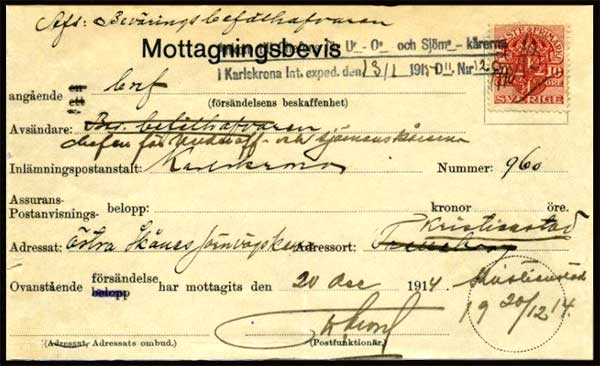 Afs: Beväringsbefälhafvaren
Mottagningsbevis
U.-O. och Sjöm.-kårerna
i Karlskrona Int. exped. den 13/1 191 D. Nr 12
TJÄNSTEFRIMÄRKE
10 ÖRE
SVERIGE
angående en ett brf
(försändelsens beskaffenhet)
Avsändare: Bev. befälhafvaren
chefen för Underoff- och sjömanskårerna
Inlämningspostanstalt: Karlskrona Nummer: 960
Assurans-
Postanvisnings- belopp: kronor öre.
Kristianstad
Adressat: Östra Skånes Järnvägs Adressort:
Ovanstående försändelse belopp har mottagits den 20 Dec 1914
Kristianstad
19 20/12 14.
(Adressat, Adressats ombud.) (Postfunktionär.)